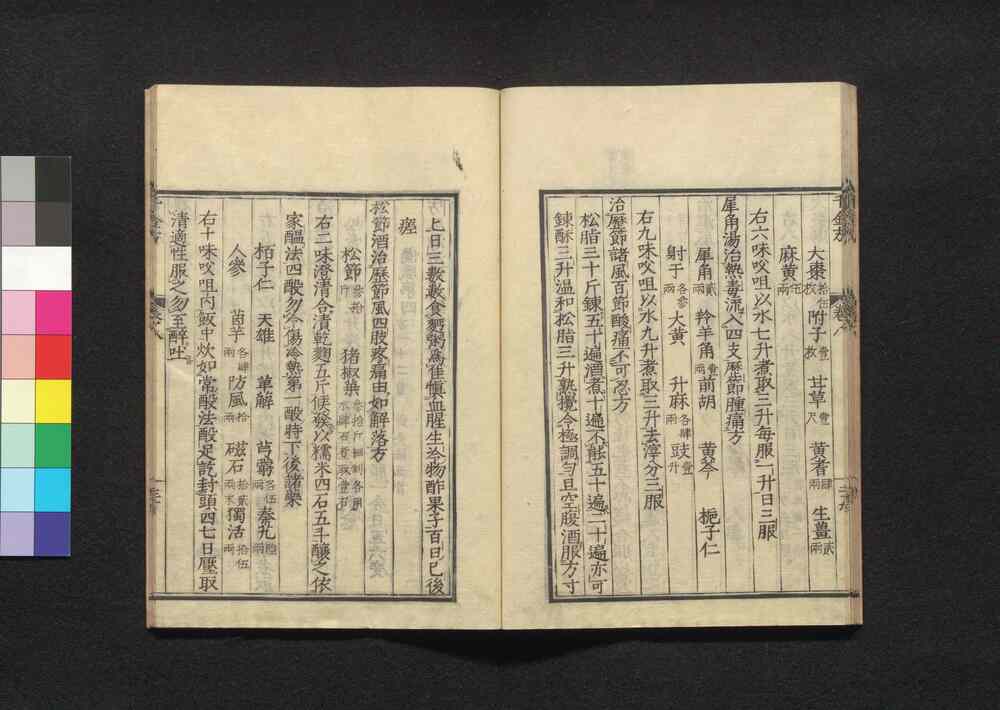 大棗拾伍枚 附子壹枚 甘草壹尺 黃耆肆兩 生薑貳兩
麻黃伍兩
右六味㕮咀以水七升煮取三升每服一升日三服
犀角湯治熱毒流入四支歷節腫痛方
犀角貳兩 羚羊角壹兩 前胡 黃芩 梔子仁
射干各參兩 大黃 升麻各肆兩 豉壹升
右九味㕮咀以水九升煮取三升去滓分三服
治歷節諸風百節酸痛不可忍方
松脂三十斤鍊五十遍酒煮十遍不能五十遍二十遍亦可
鍊酥三升溫和松脂三升熟攪令極調勻旦空腹酒服方寸
匕日三數數食麪粥為佳慎血腥生冷物酢果子百日已後
瘥
松節酒治歷節風四肢疼痛由如解落方
松節參拾斤 猪椒葉參拾斤細剉各用水肆石煮取壹石
右二味澄清合漬乾麴五斤候發以糯米四石五斗釀之依
家醞法四酘勿令傷冷熱第一酘時下後諸藥
柏子仁 天雄 萆解 芎藭各伍兩 秦艽陸兩
人參 茵芋各肆兩 防風拾兩 磁石拾貳兩末 獨活拾伍兩
右十味㕮咀內飯中炊如常酘法酘足訖封頭四七日壓取
清適性服之勿至醉吐